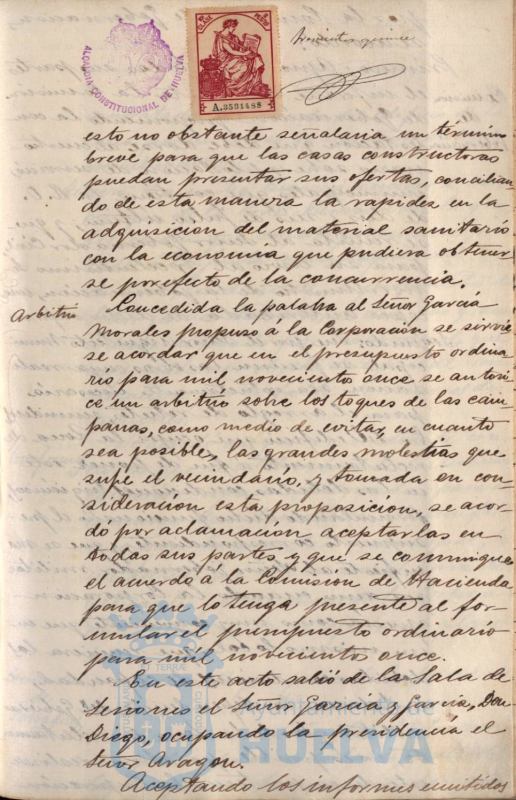 ALCALDIA CONSTITUCIONAL DE HUELVA
A.3591488
trescientos quince
esto no obstante señalaria un término
breve para que las casas constructoras
puedan presentar sus ofertas, concilian-
do de esta manera la rapidez en la
adquisicion del material sanitario
con la economía que pudiera obtener
se por efecto de la concurrencia.
Arbitrio
Concedida la palabra al Señor García
Morales propuso á la Corporación se sirvie
se acordar que en el presupuesto ordina
rio para mil noveciento once se autori
ce un arbitrio sobre los toques de las cam
panas, como medio de evitar, en cuanto
sea posible, las grandes molestias que
sufe el vecindario, y tomada en con
sideración esta proposición, se acor
dó por aclamación aceptarlas en
todas sus partes y que se comunique
el acuerdo á la Comisión de Hacienda
para que lo tenga presente al for-
mular el presupuesto ordinario
para mil noveciento once.
En este acto salió de la Sala de
Sesiones el Señor García y García, Don
Diego, ocupando la presidencia el
Señor Aragon.
Aceptando los informes emitidos
Ayuntamiento de
HUELVA